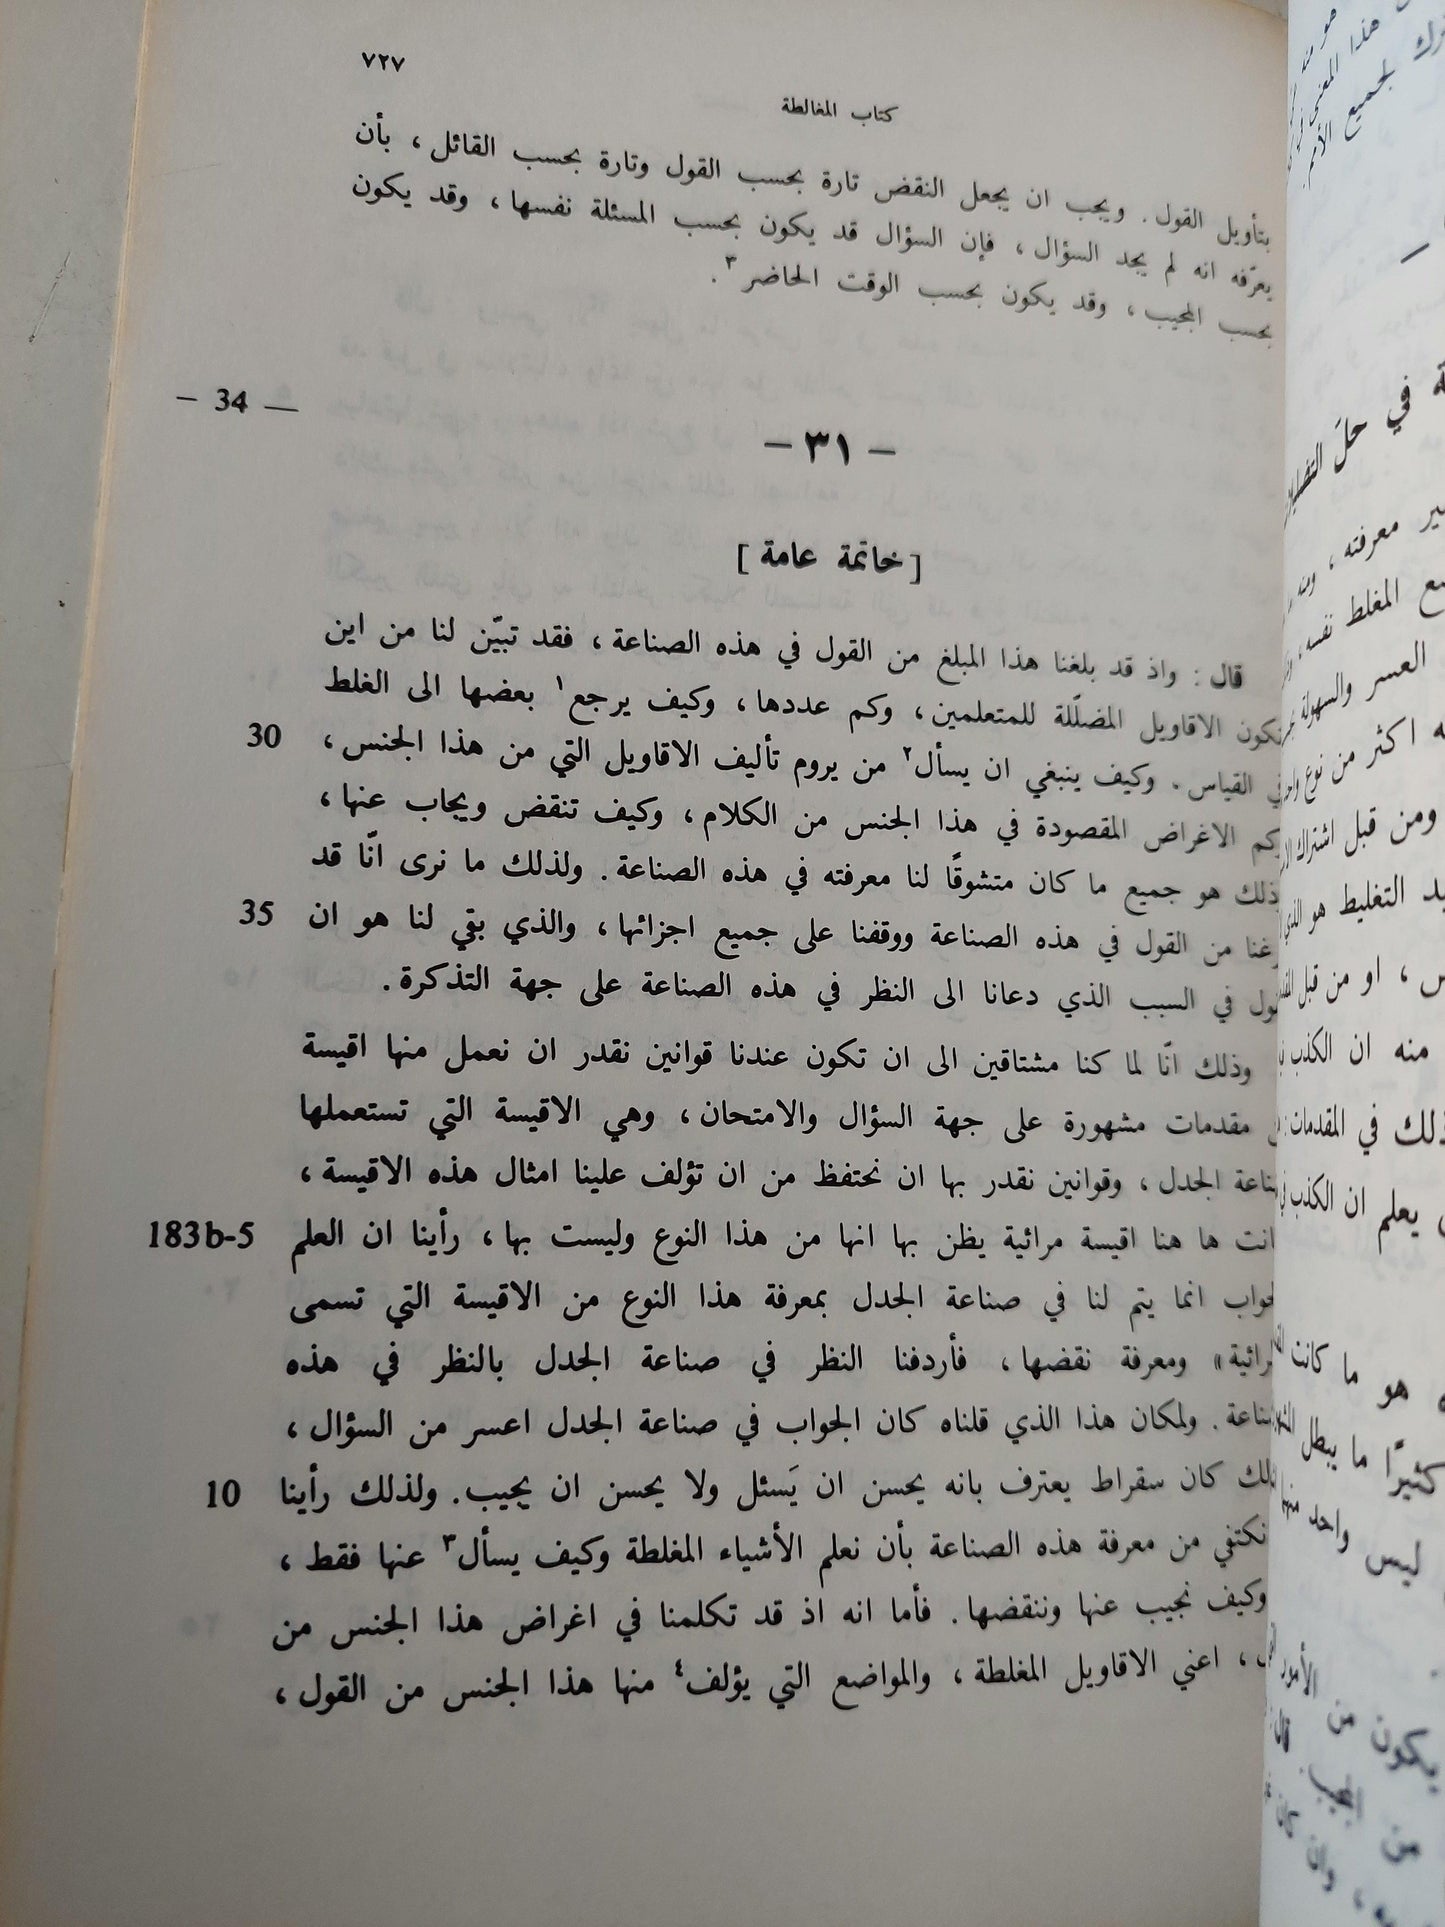 ٧٢٧
كتاب المغالطة
بتأويل القول . ويجب ان يجعل النقض تارة بحسب القول وتارة بحسب القائل ، بأن
يعرّفه انه لم يجد السؤال ، فإن السؤال قد يكون بحسب المسئلة نفسها ، وقد يكون
بحسب المجيب ، وقد يكون بحسب الوقت الحاضر ٣ .
— 34 —
— ٣١ —
[ خاتمة عامة ]
قال : واذ قد بلغنا هذا المبلغ من القول في هذه الصناعة ، فقد تبيّن لنا من اين
تكون الاقاويل المضلّلة للمتعلمين ، وكم عددها ، وكيف يرجع ١ بعضها الى الغلط
30 في القياس . وكيف ينبغي ان يسأل ٢ من يروم تأليف الاقاويل التي من هذا الجنس ،
وكم الاغراض المقصودة في هذا الجنس من الكلام ، وكيف تنقض ويجاب عنها ،
وذلك هو جميع ما كان متشوقًا لنا معرفته في هذه الصناعة . ولذلك ما نرى انّا قد
35 من القول في هذه الصناعة ووقفنا على جميع اجزائها ، والذي بقي لنا هو ان
في السبب الذي دعانا الى النظر في هذه الصناعة على جهة التذكرة .
وذلك انّا لما كنا مشتاقين الى ان تكون عندنا قوانين نقدر ان نعمل منها اقيسة
مقدمات مشهورة على جهة السؤال والامتحان ، وهي الاقيسة التي تستعملها
الجدل ، وقوانين نقدر بها ان نحتفظ من ان تؤلف علينا امثال هذه الاقيسة ،
183b-5 ها هنا اقيسة مرائية يظن بها انها من هذا النوع وليست بها ، رأينا ان العلم
انما يتم لنا في صناعة الجدل بمعرفة هذا النوع من الاقيسة التي تسمى
ومعرفة نقضها ، فأردفنا النظر في صناعة الجدل بالنظر في هذه
. ولمكان هذا الذي قلناه كان الجواب في صناعة الجدل اعسر من السؤال ،
10 كان سقراط يعترف بانه يحسن ان يَسئل ولا يحسن ان يجيب . ولذلك رأينا
نكتفي من معرفة هذه الصناعة بأن نعلم الأشياء المغلطة وكيف يسأل ٣ عنها فقط ،
وكيف نجيب عنها وننقضها . فأما انه اذ قد تكلمنا في اغراض هذا الجنس من
، اعني الاقاويل المغلطة ، والمواضع التي يؤلف ٤ منها هذا الجنس من القول ،